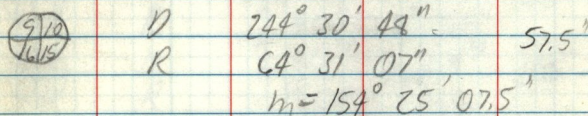 9 10
16 15
D 244° 30' 48"
R 64° 31' 07" 57.5"
m= 154° 25' 07.5'